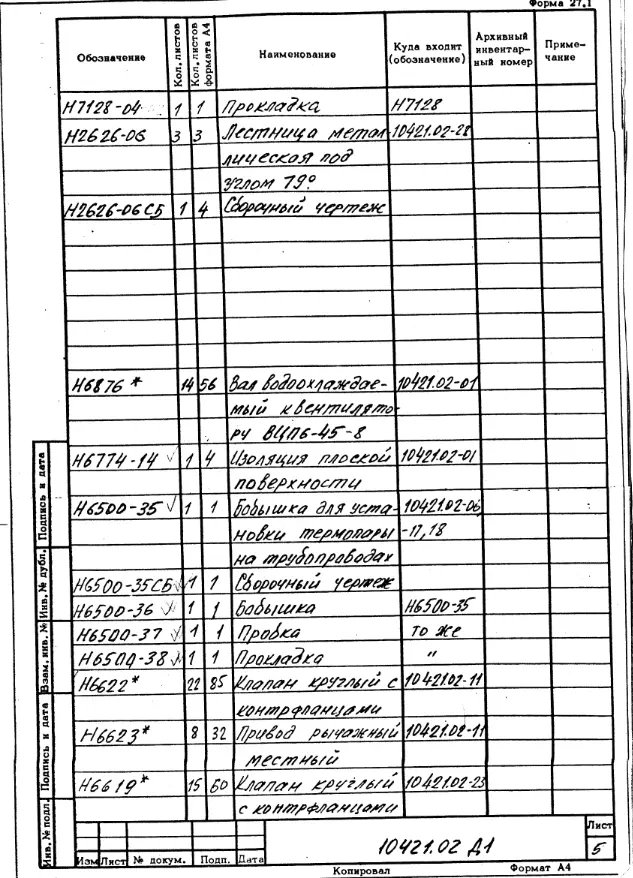 Форма 27.1
Обозначение Кол. листов Кол. листов формата А4 Наименование Куда входит (обозначение) Архивный инвентар-ный номер Приме-чание
Н7128-04 1 1 Прокладка Н7128
Н2626-06 3 3 Лестница метал- 10421.02-28
лическая под
углом 79°
Н2626-06СБ 1 4 Сборочный чертеж
Н6876 * 14 56 Вал водоохлаждае- 10421.02-01
мый к вентилято-
ру ВЦП6-45-8
Н6774-14 ✓ 1 4 Изоляция плоской 10421.02-01
поверхности
Н6500-35 ✓ 1 1 Бобышка для уста- 10421.02-06,
новки термопары -17,18
на трубопроводах
Н6500-35СБ ✓ 1 1 Сборочный чертеж
Н6500-36 ✓ 1 1 Бобышка Н6500-35
Н6500-37 ✓ 1 1 Пробка то же
Н6500-38 ✓ 1 1 Прокладка "
Н6622* 22 85 Клапан круглый с 10421.02-11
контрфланцами
Н6623* 8 32 Привод рычажный 10421.02-11
местный
Н6619* 15 60 Клапан круглый 10421.02-23
с контрфланцами
Подпись и дата
Инв. № дубл.
Взам. инв. №
Подпись и дата
Инв. № подл.
Изм Лист № докум. Подп. Дата
10421.02 Д1
Лист
5
Копировал Формат А4